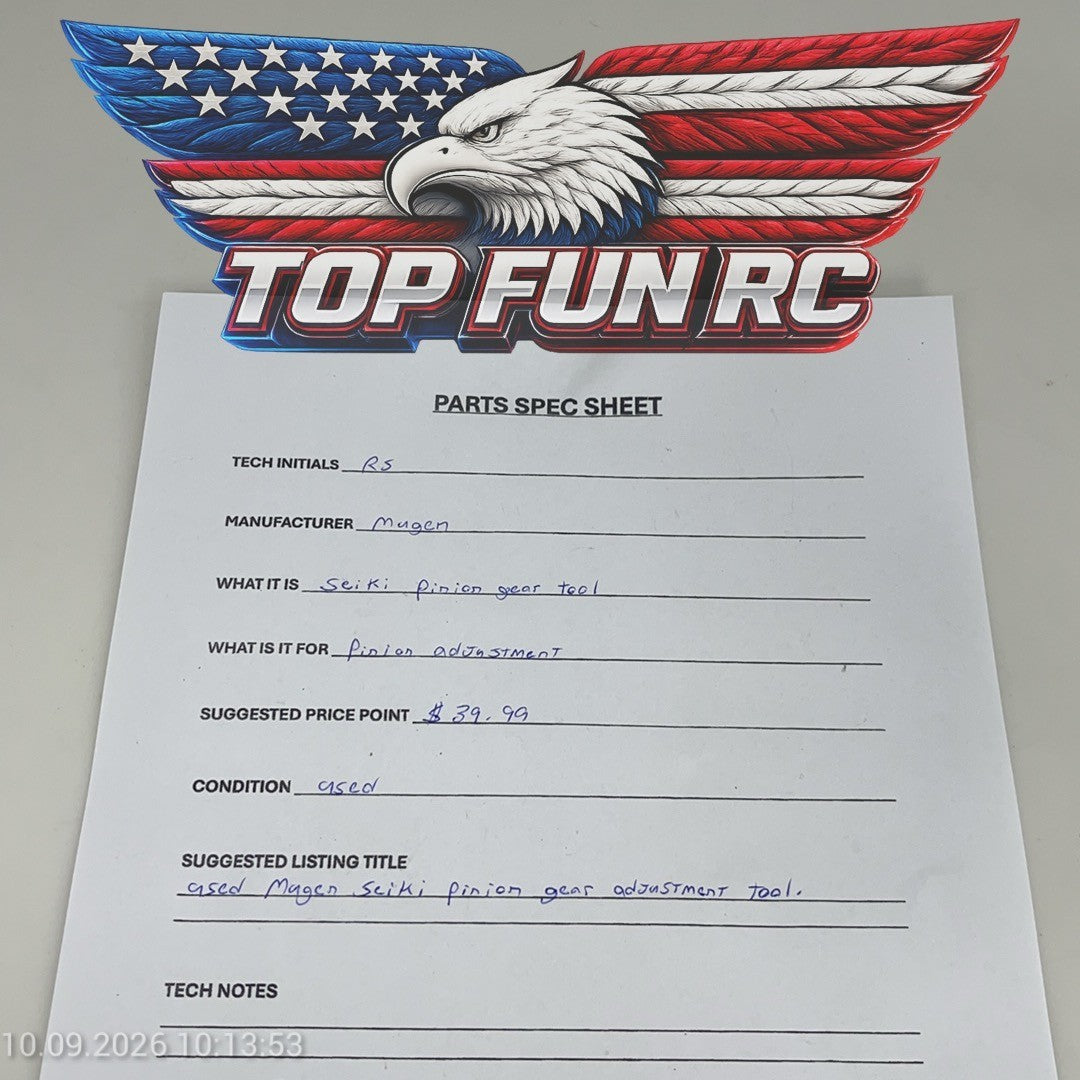 TOP FUN RC
PARTS SPEC SHEET
TECH INITIALS RS
MANUFACTURER Mugen
WHAT IT IS Seiki pinion gear tool
WHAT IS IT FOR Pinion adjustment
SUGGESTED PRICE POINT $ 39.99
CONDITION used
SUGGESTED LISTING TITLE
used Mugen Seiki pinion gear adjustment tool.
TECH NOTES
10.09.2026 10:13:53